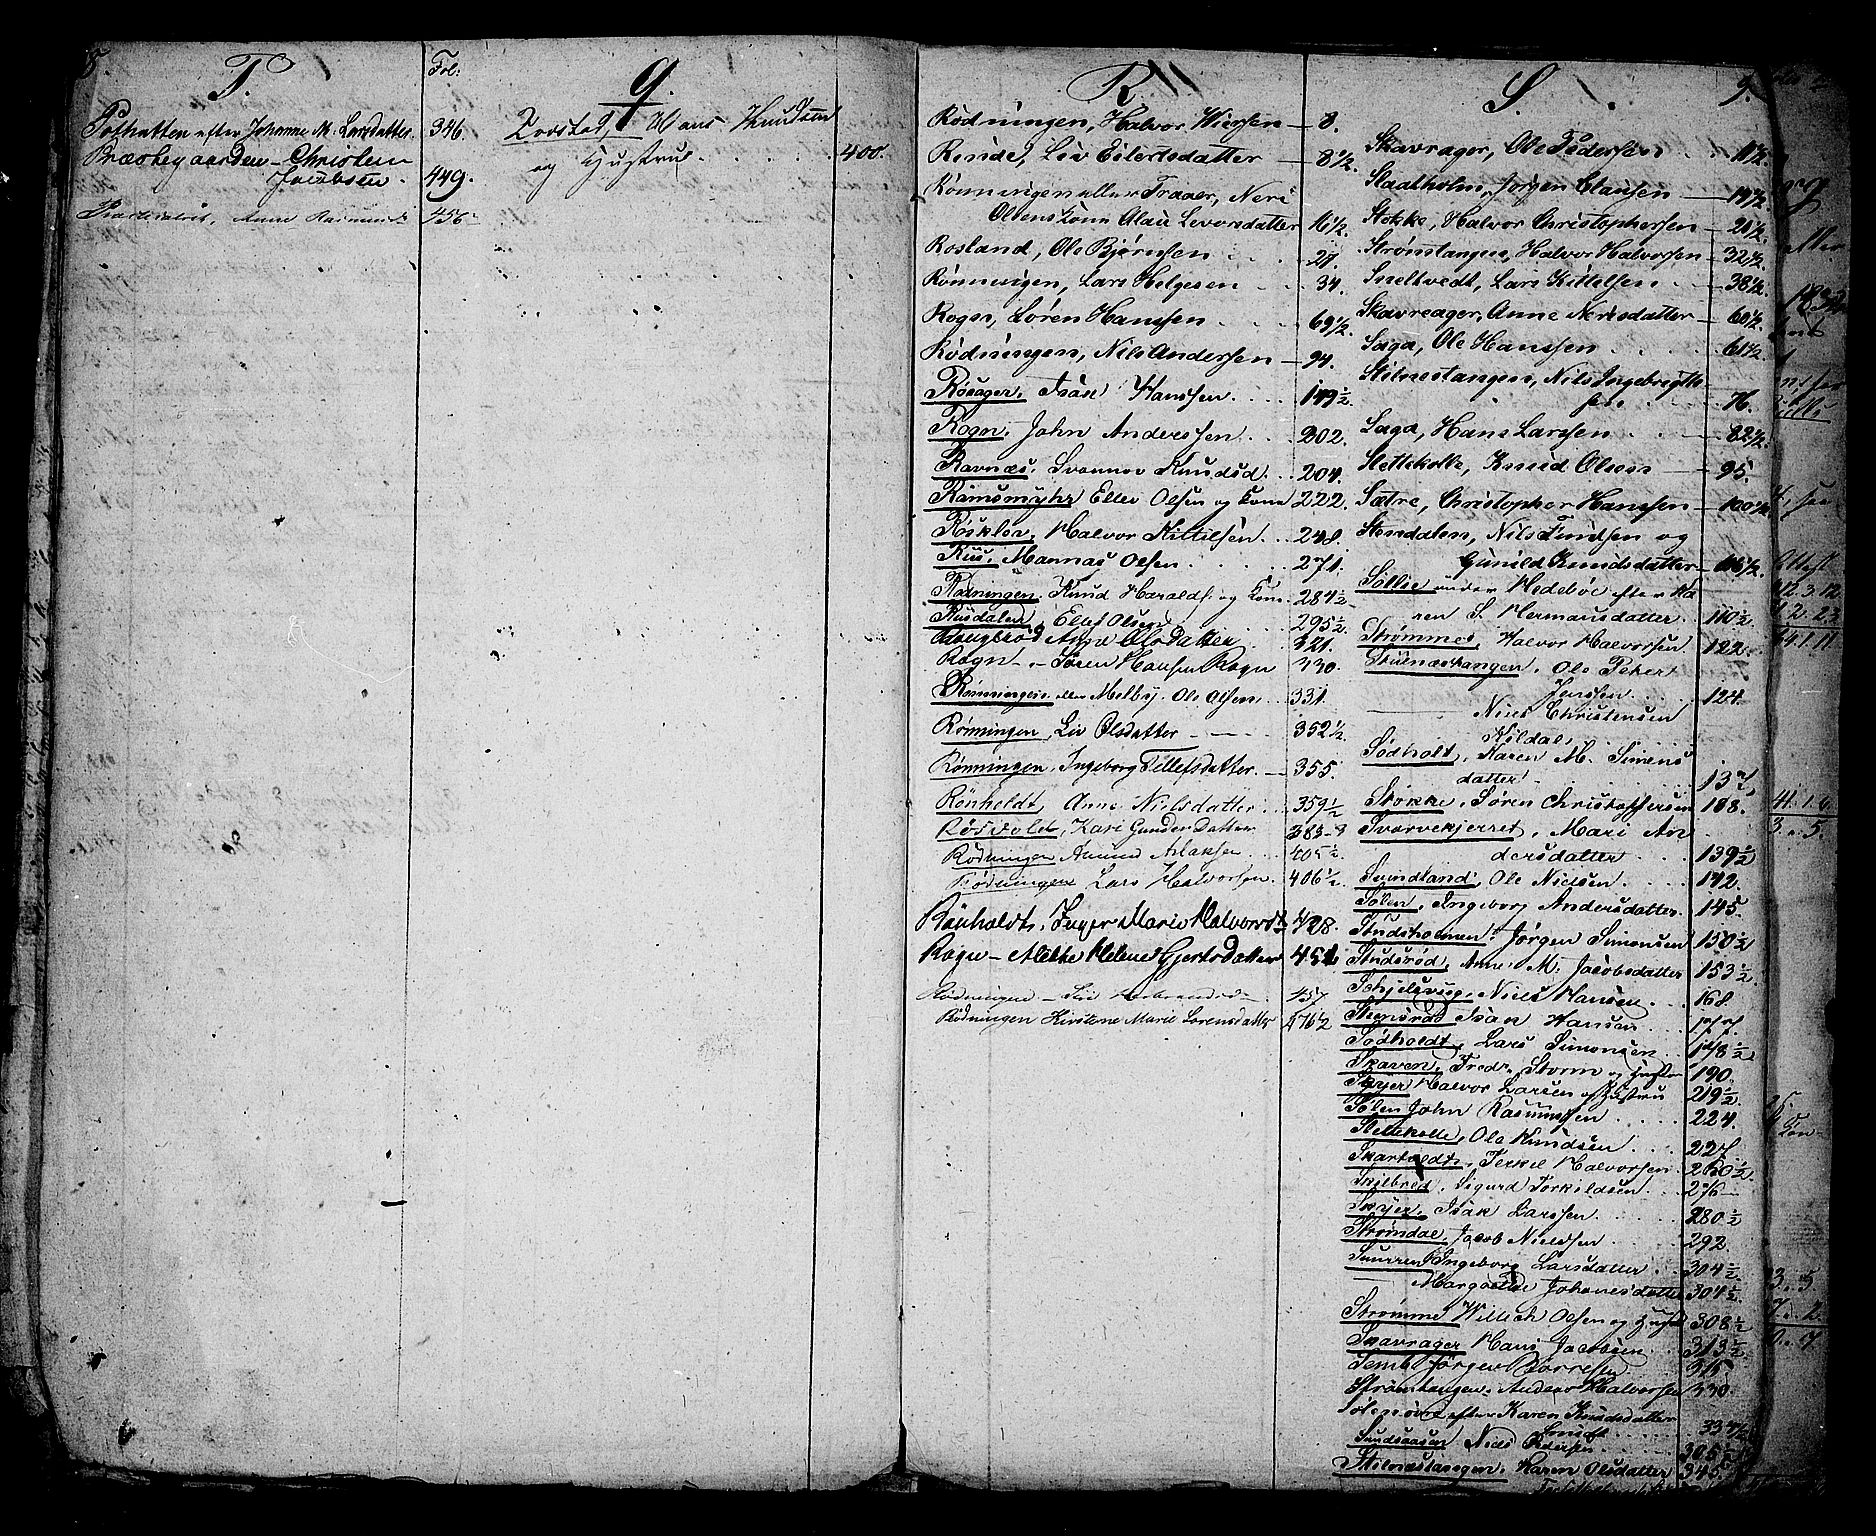 8.
P.
Fol:
Pothatten efter Johanne M. Larsdatter. 346.
Præstegaarden - Christen
Jacobsen. 449.
Anne Rasmusd. 456
Q
Hans Knudsen
og Hustrue. 400.
R.
Rødningen, Halvor Wiersen - 8.
Rinde, Liv Eilertsdatter - 8 1/2.
Rønningen eller Traaer, Neri
Olsens Kone Alau Levorsdatter 16 1/2.
Rosland, Ole Bjørnsen 27.
Rønningen, Lars Helgesen 34.
Rogn, Søren Hanssen 69 1/2.
Rødningen, Nils Anderssen - 94.
Røsager. Isak Hanssen 149 1/2.
Rogn. John Anderssen 202.
Ravnæs. Svannov Knudsd. 204.
Ramsmyhr Ellev Olsen og Kone 222.
Røsklev. Halvor Kittilsen 248.
Riis. Mannas Olsen 271.
Rødningen. Knud Haralds. og Kone 284 1/2
Riisdalen, Ellef Olsen 295 1/2.
Anna Olsdatter 321.
Rogn - Søren Hansen Rogn 330.
Rønningen eller Melby, Ole Olsen 331.
Rønningen, Liv Olsdatter 352 1/2
Rønningen, Ingeborg Tellefsdatter 355.
Rønholdt, Anne Nielsdatter 359 1/2
Røsvold, Kari Gunder Datter 383
Rødningen Amund Aslaksen 405 1/2
Rødningen Lars Halvorsen 406 1/2
Rønholdt, Inger Marie Halvorsdt. 428.
Rogn - Alette Helene Gjertsdatter 451
Rødningen - Siri 457
Rødningen Kirstene Marie Lorensdatter 476 1/2
S.
9.
Skavrager, Ole Pedersen 11 1/2.
Staatholm, Jørgen Clausen 14 1/2.
Stokke, Halvor Christophersen - 21 1/2.
Strømstangen, Halvor Halvorsen - 32 1/2.
Sneltvedt, Lars Kittelsen 38 1/2.
Skavrager, Anne Nerisdatter - 60 1/2.
Saga, Ole Hanssen 61 1/2.
Stilnestangen, Nils Ingebrigt-
sen 76.
Saga, Hans Larssen 82 1/2.
Slettekolle, Knud Olsen - 95.
Sætre, Christopher Hanssen - 100 1/2
Stendalen, Nils Knudsen og
Gunild Knudsdatter - 106 1/2.
Søllie under Hedebøe efter Ka
ren S. Hermansdatter 110 1/2
Strømmes, Halvor Halvorsen 122.
Stilnæstangen, Ole Peter
Jenssen 124.
Niels Christensen
Kildal.
Sødholt, Karen M. Simens
datter 137.
Stokke. Søren Christophersen 188.
Svarvekjerret, Mari An
dersdatter 139 1/2
Svindland, Ole Nielsen 142.
Sølen, Ingeborg Andersdatter 145.
Studsholmen. Jørgen Simonsen 150 1/2
Studsrød, Anne M. Jacobsdatter 153 1/2
Schjelsvig, Niels Hansen 168.
Stensrød Isak Hansen 177.
Sødholdt, Lars Simonsen 178 1/2
Skaven, Fredr. Storm og Hustr. 190.
Skjer Halvor Larsen og Hustru 219 1/2
Sølen John Rasmussen 224.
Slettekolle, Ole Knudsen 227
Skarholdt, Terkel Halvorsen 260 1/2
Skjelbred, Sigurd Torkildsen 276
Skjer. Isak Larssen 280 1/2
Strømdal, Jacob Nielsen 292.
Ingeborg Larsdatter 304 1/2
Margrethe Johanesdatter 304 1/2
Strømme Willich Olsen og Hustr. 308 1/2
Skavrager Hans Jacobsen 313 1/2
Jørgen 315
Strømtangen. Anders Halvorsen 330.
efter Karen Knudsdatter
334 1/2
Sundsaasen Niels Pedersen 305 1/2
Stilnæstangen. Karen Olsdatter 345